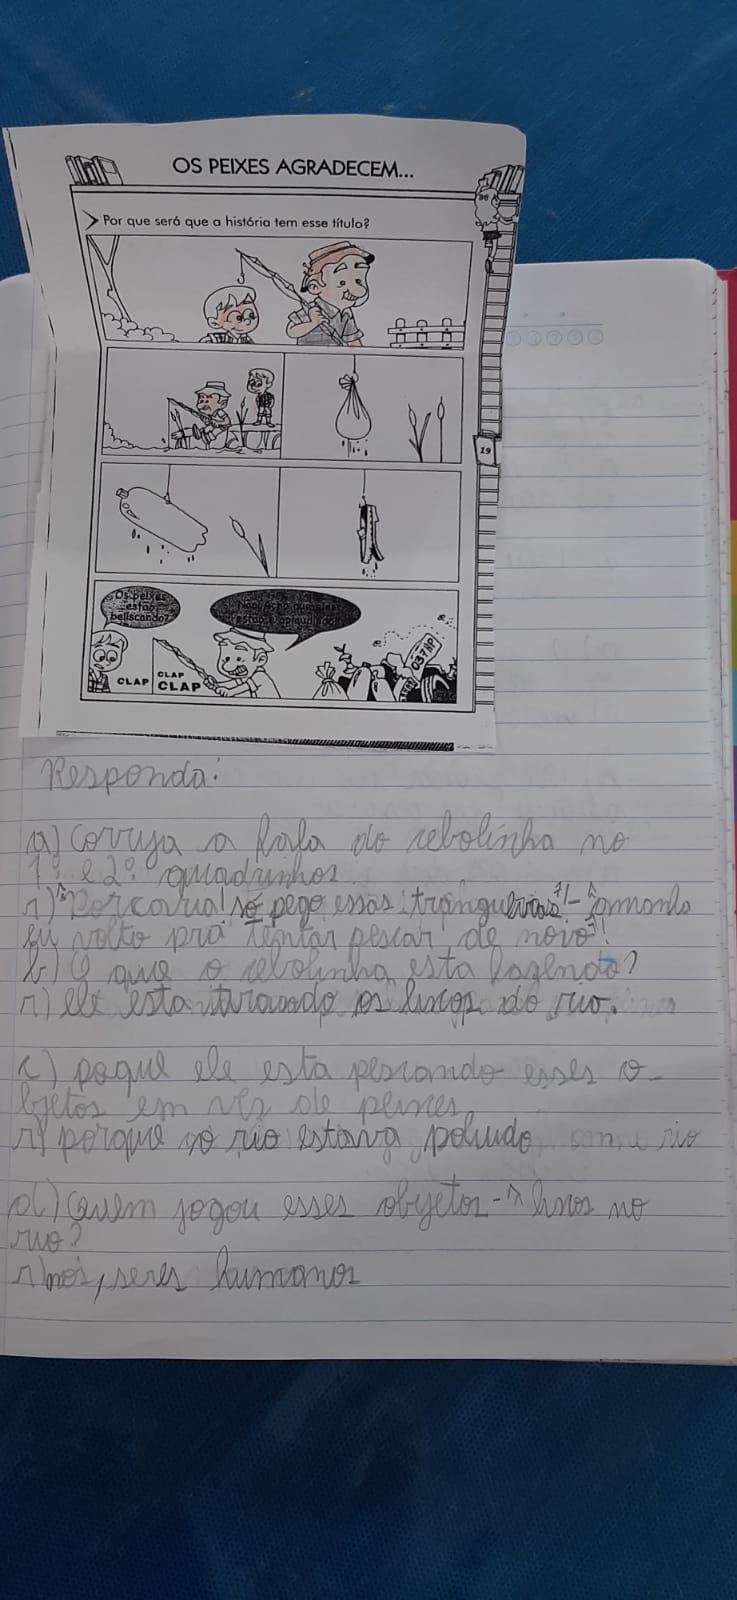 OS PEIXES AGRADECEM...
96
Por que será que a história tem esse título?
19
Os peixes
estão
beliscando?
Não! Acho que eles
estão é aplaudindo!
CLAP
CLAP
CLAP
037HP
Responda:
a) corrija a fala do cebolinha no
1º e 2º quadrinhos
r) "Porcaria! só pego essas tranqueiras"!-"amanhã
eu volto pra tentar pescar de novo"!
b) O que o cebolinha esta fazendo?
r) ele esta tirando os lixos do rio.
c) poque ele esta pescando esses o-
bjetos em vez de peixes
r) porque o rio estava poluido
d) Quem jogou esses objetos-> lixos no
rio?
r) nós, seres humanos